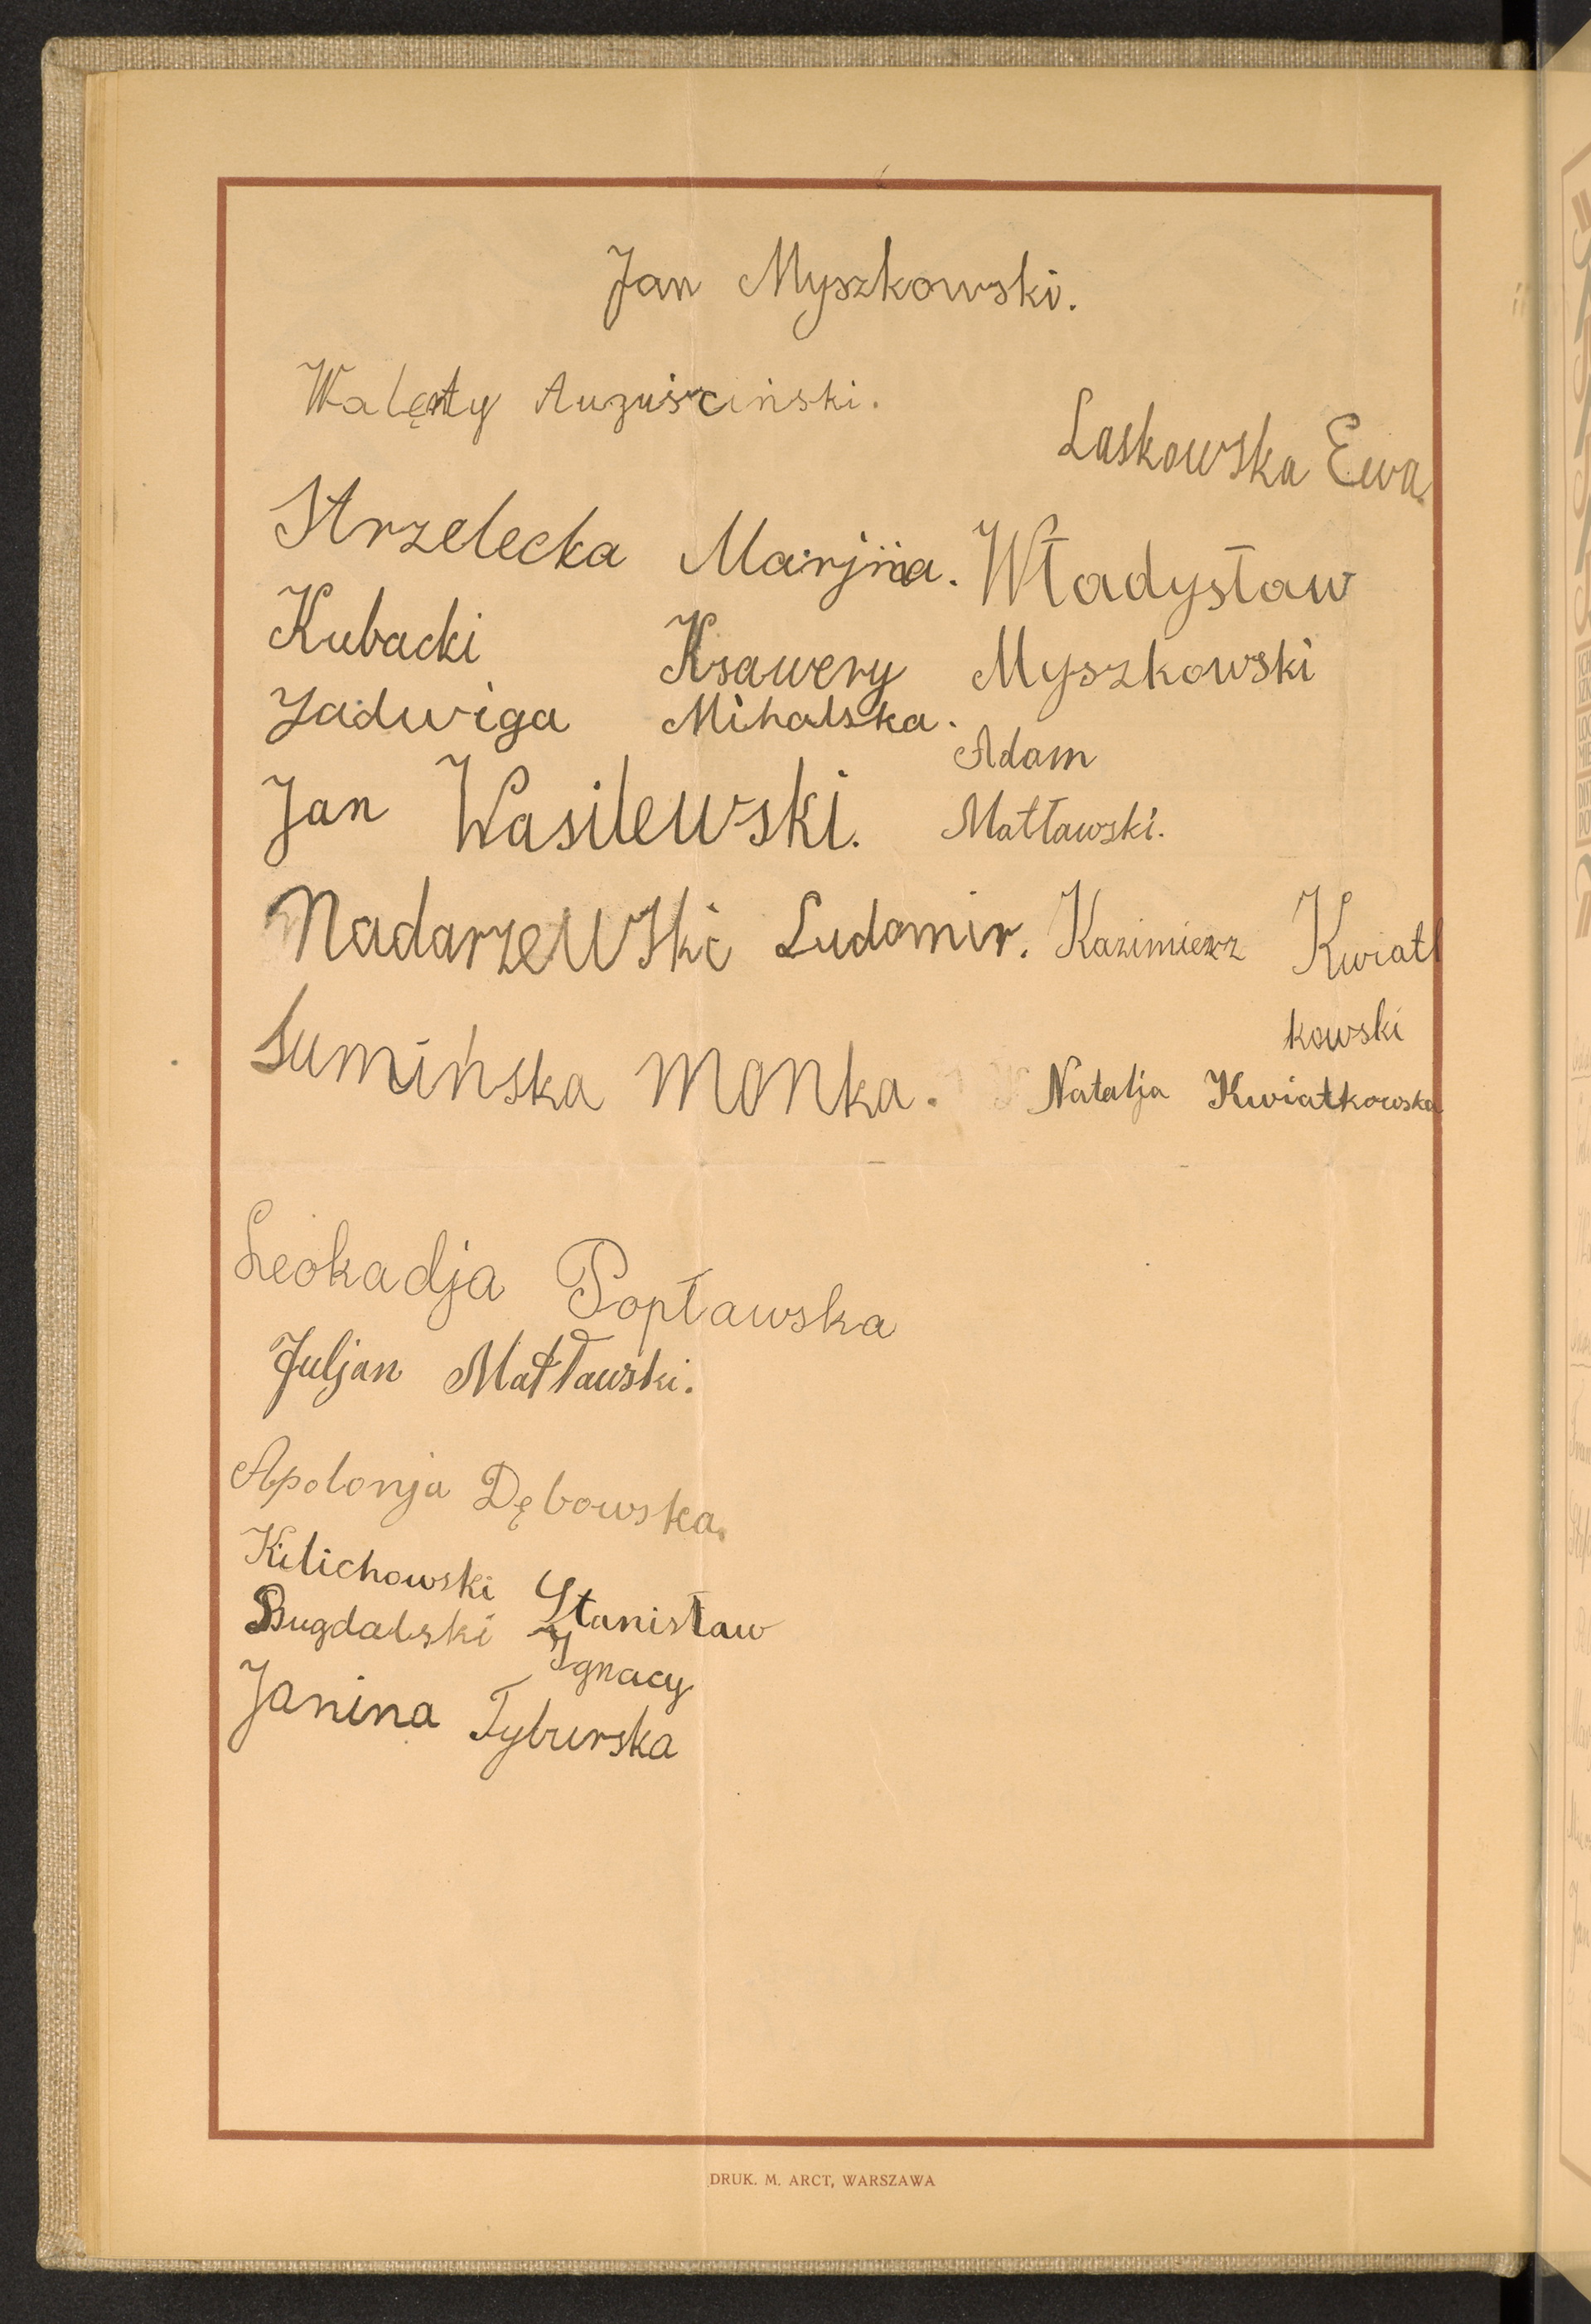 Jan Myszkowski.
Walęnty Auguściński.
Laskowska Ewa.
Strzelecka Marjna.
Władysław
Kubacki Ksawery
Myszkowski
Jadwiga Mihalska.
Adam
Jan Wasilewski.
Matławski.
Nadarzewski Ludomir.
Kazimierz Kwiatl
kowski
Sumińska Monka.
Natalja Kwiatkowska
Leokadja Popławska
Juljan Matławski.
Apolonja Dębowska.
Kilichowski Stanisław
Bugdalski Ignacy
Janina Tyburska
DRUK. M. ARCT, WARSZAWA